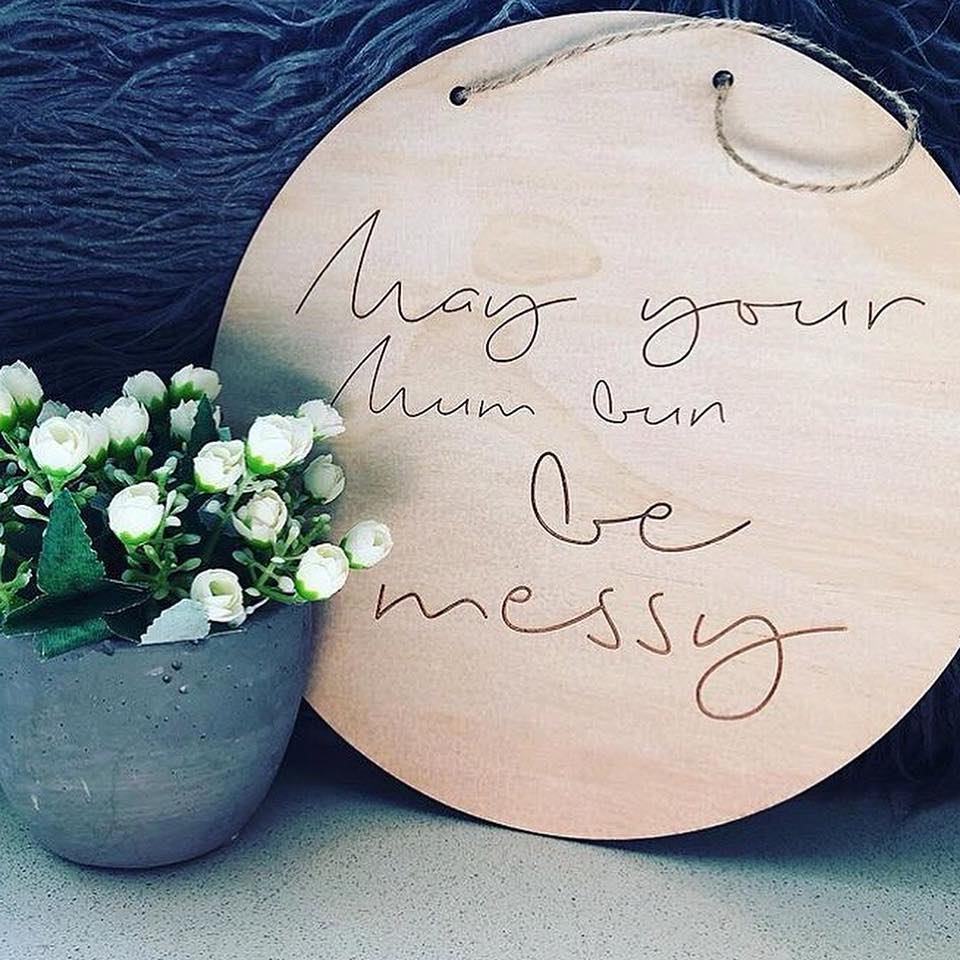 May your
Mum bun
be
messy